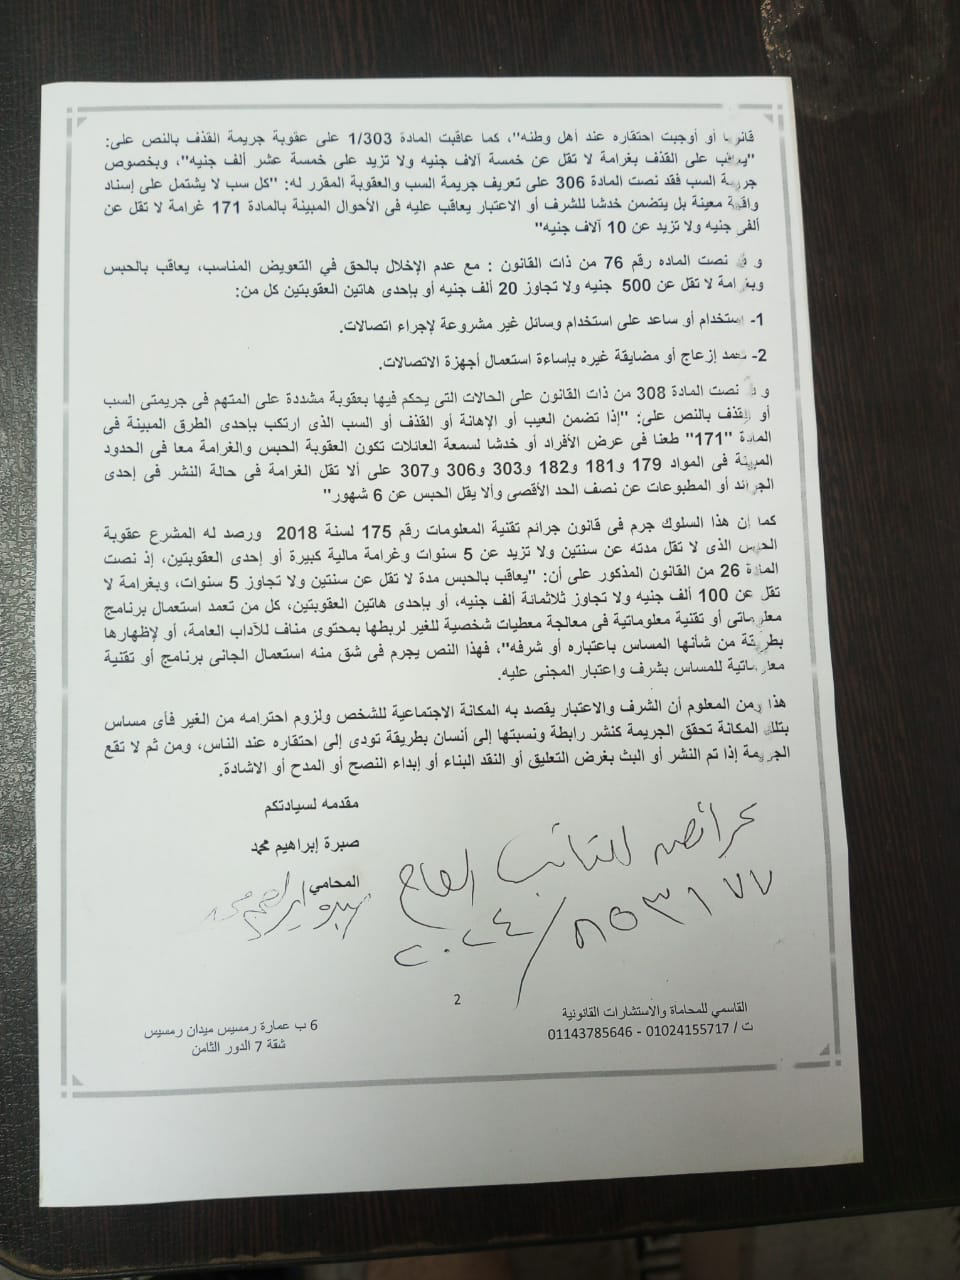 قانونا أو أوجبت احتقاره عند أهل وطنه"، كما عاقبت المادة 1/303 على عقوبة جريمة القذف بالنص على:
"يعاقب على القذف بغرامة لا تقل عن خمسة آلاف جنيه ولا تزيد على خمسة عشر ألف جنيه"، وبخصوص
جريمة السب فقد نصت المادة 306 على تعريف جريمة السب والعقوبة المقرر له: "كل سب لا يشتمل على إسناد
واقعة معينة بل يتضمن خدشا للشرف أو الاعتبار يعاقب عليه فى الأحوال المبينة بالمادة 171 غرامة لا تقل عن
ألفي جنيه ولا تزيد عن 10 آلاف جنيه"
و قد نصت الماده رقم 76 من ذات القانون : مع عدم الإخلال بالحق في التعويض المناسب، يعاقب بالحبس
وبغرامة لا تقل عن 500 جنيه ولا تجاوز 20 ألف جنيه أو بإحدى هاتين العقوبتين كل من:
1- استخدام أو ساعد على استخدام وسائل غير مشروعة لإجراء اتصالات.
2- تعمد إزعاج أو مضايقة غيره بإساءة استعمال أجهزة الاتصالات.
و قد نصت المادة 308 من ذات القانون على الحالات التى يحكم فيها بعقوبة مشددة على المتهم فى جريمتى السب
أو القذف بالنص على: "إذا تضمن العيب أو الإهانة أو القذف أو السب الذى ارتكب بإحدى الطرق المبينة فى
المادة "171" طعنا فى عرض الأفراد أو خدشا لسمعة العائلات تكون العقوبة الحبس والغرامة معا فى الحدود
المبينة فى المواد 179 و181 و182 و303 و306 و307 على ألا تقل الغرامة فى حالة النشر فى إحدى
الجرائد أو المطبوعات عن نصف الحد الأقصى وألا يقل الحبس عن 6 شهور"
كما أن هذا السلوك جرم فى قانون جرائم تقنية المعلومات رقم 175 لسنة 2018 ورصد له المشرع عقوبة
الحبس الذى لا تقل مدته عن سنتين ولا تزيد عن 5 سنوات وغرامة مالية كبيرة أو إحدى العقوبتين، إذ نصت
المادة 26 من القانون المذكور على أن: "يعاقب بالحبس مدة لا تقل عن سنتين ولا تجاوز 5 سنوات، وبغرامة لا
تقل عن 100 ألف جنيه ولا تجاوز ثلاثمائة ألف جنيه، أو بإحدى هاتين العقوبتين، كل من تعمد استعمال برنامج
معلوماتى أو تقنية معلوماتية فى معالجة معطيات شخصية للغير لربطها بمحتوى مناف للآداب العامة، أو لإظهارها
بطريقة من شأنها المساس باعتباره أو شرفه"، فهذا النص يجرم فى شق منه استعمال الجانى برنامج أو تقنية
معلوماتية للمساس بشرف واعتبار المجنى عليه.
هذا ومن المعلوم أن الشرف والاعتبار يقصد به المكانة الاجتماعية للشخص ولزوم احترامه من الغير فأى مساس
بتلك المكانة تحقق الجريمة كنشر رابطة ونسبتها إلى أنسان بطريقة تودى إلى احتقاره عند الناس، ومن ثم لا تقع
الجريمة إذا تم النشر أو البث بغرض التعليق أو النقد البناء أو إبداء النصح أو المدح أو الاشادة.
مقدمه لسيادتكم
صبرة إبراهيم محمد
المحامي
صبره ابراهيم محمد
عرائض النائب العام
٨٥٣١٧٧ / ٢٠٢٤
2
القاسمي للمحاماة والاستشارات القانونية
ت / 01024155717 - 01143785646
6 ب عمارة رمسيس ميدان رمسيس
شقة 7 الدور الثامن